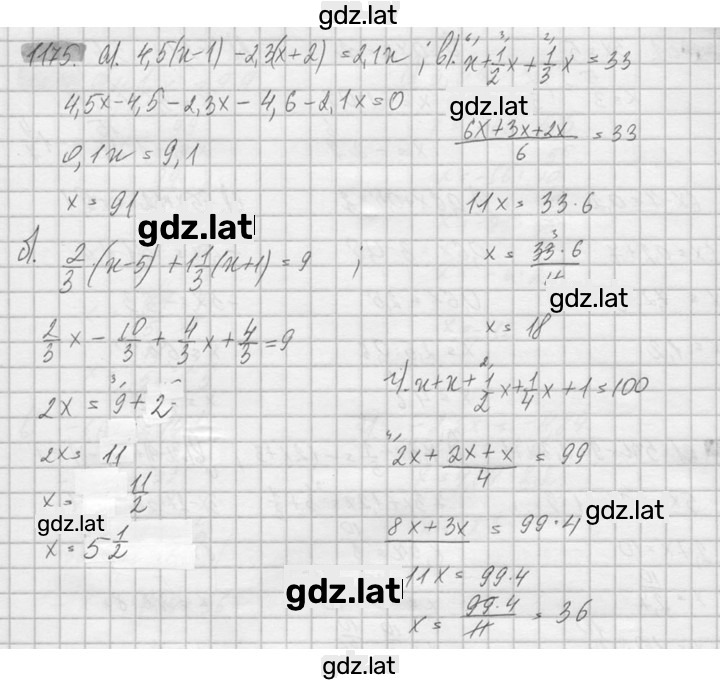 gdz.lat
1175. а). 4,5(x-1) -2,3(x+2) = 2,1x ;
4,5x-4,5-2,3x-4,6-2,1x=0
0,1x = 9,1
x = 91
gdz.lat
б). 2/3 · (x-5) + 1 1/3 (x+1) = 9 ;
2/3 x - 10/3 + 4/3 x + 4/3 = 9
2x = 9+2
2x = 11
x = 11/2
gdz.lat
x = 5 1/2
в). x + 1/2 x + 1/3 x = 33
gdz.lat
(6x+3x+2x)/6 = 33
11x = 33·6
x = (33·6)/11
gdz.lat
x = 18
г). x+x+ 1/2 x + 1/4 x + 1 = 100
2x + (2x+x)/4 = 99
gdz.lat
8x+3x = 99·4
11x = 99·4
gdz.lat
x = (99·4)/11 = 36
gdz.lat